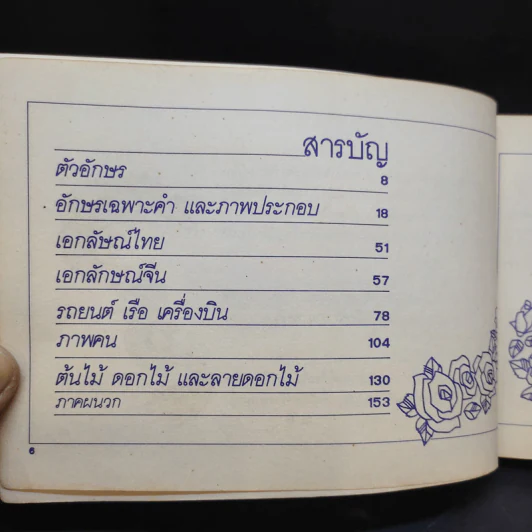 สารบัญ
ตัวอักษร 8
อักษรเฉพาะคำ และภาพประกอบ 18
เอกลัษณ์ไทย 51
เอกลักษณ์จีน 57
รถยนต์ เรือ เครื่องบิน 78
ภาพคน 104
ต้นไม้ ดอกไม้ และลายดอกไม้ 130
ภาคผนวก 153
6